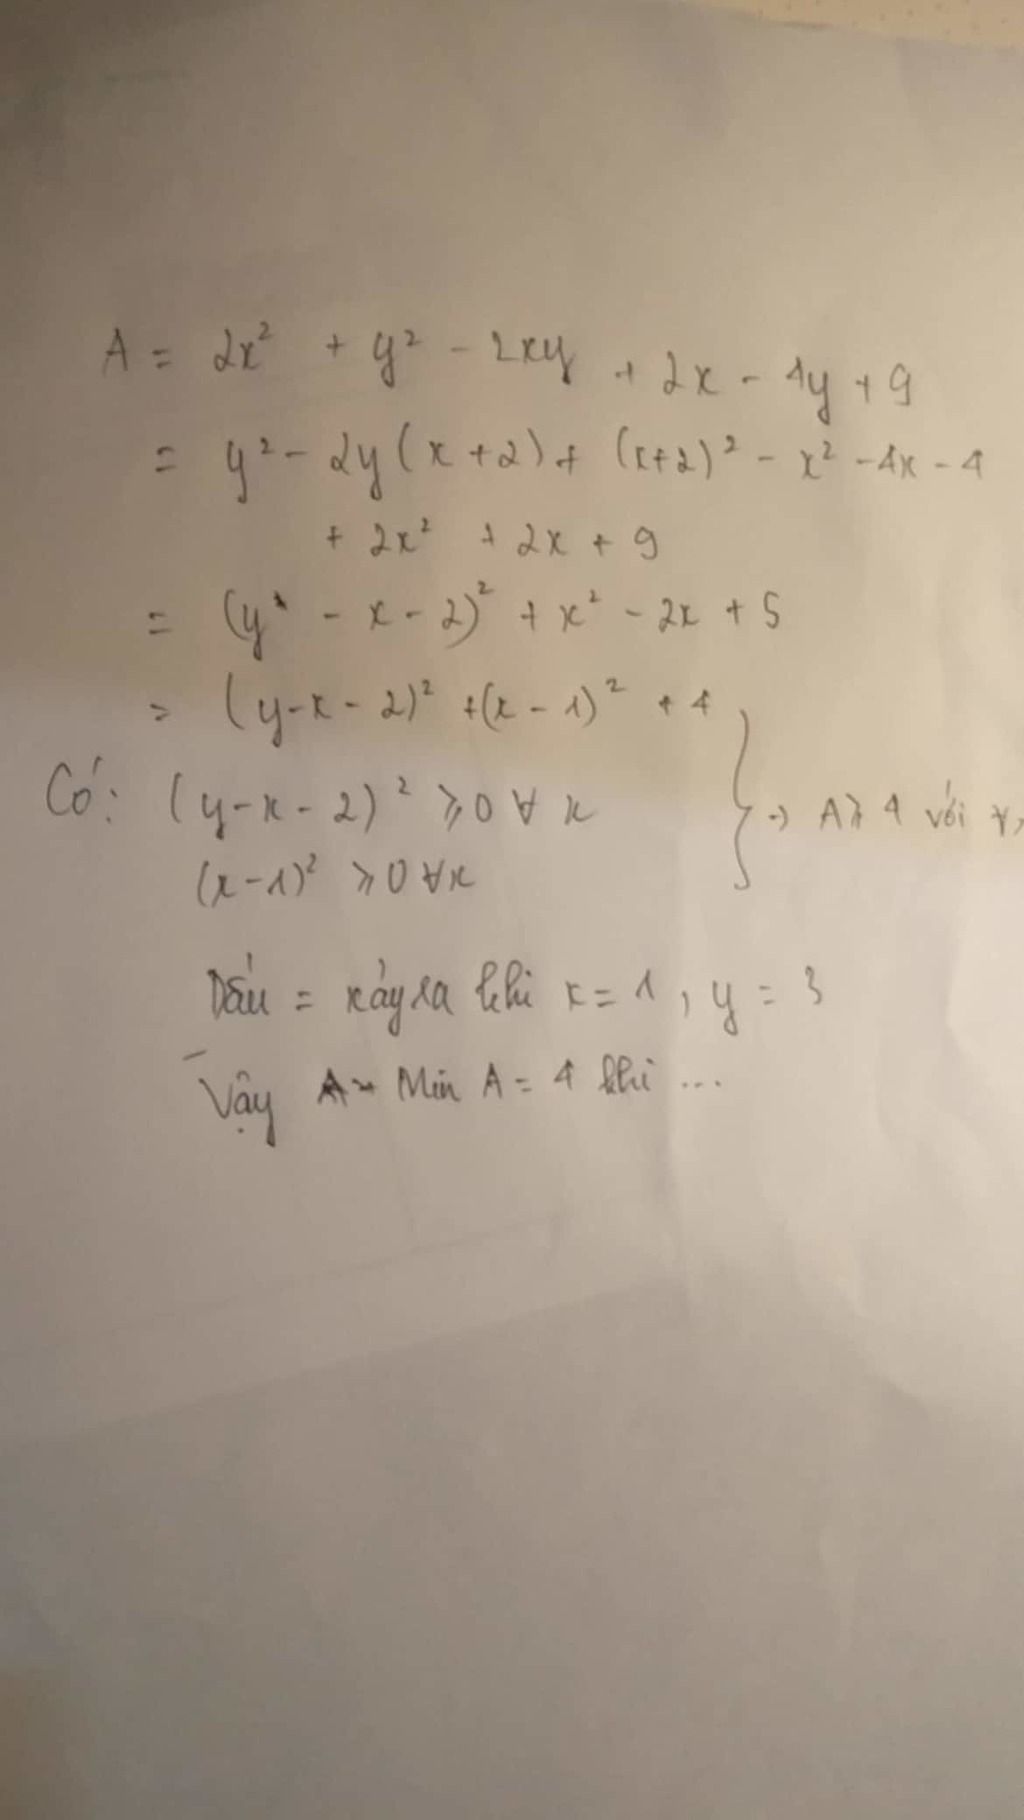 A = 2x² + y² - 2xy + 2x - 4y + 9
= y² - 2y(x+2) + (x+2)² - x² - 4x - 4
+ 2x² + 2x + 9
= (y - x - 2)² + x² - 2x + 5
= (y-x-2)² + (x-1)² + 4
Có: (y-x-2)² ≥ 0 ∀ x
(x-1)² ≥ 0 ∀x
} → A ≥ 4 với ∀
Dấu = xảy ra khi x = 1, y = 3
Vậy Min A = 4 khi ...